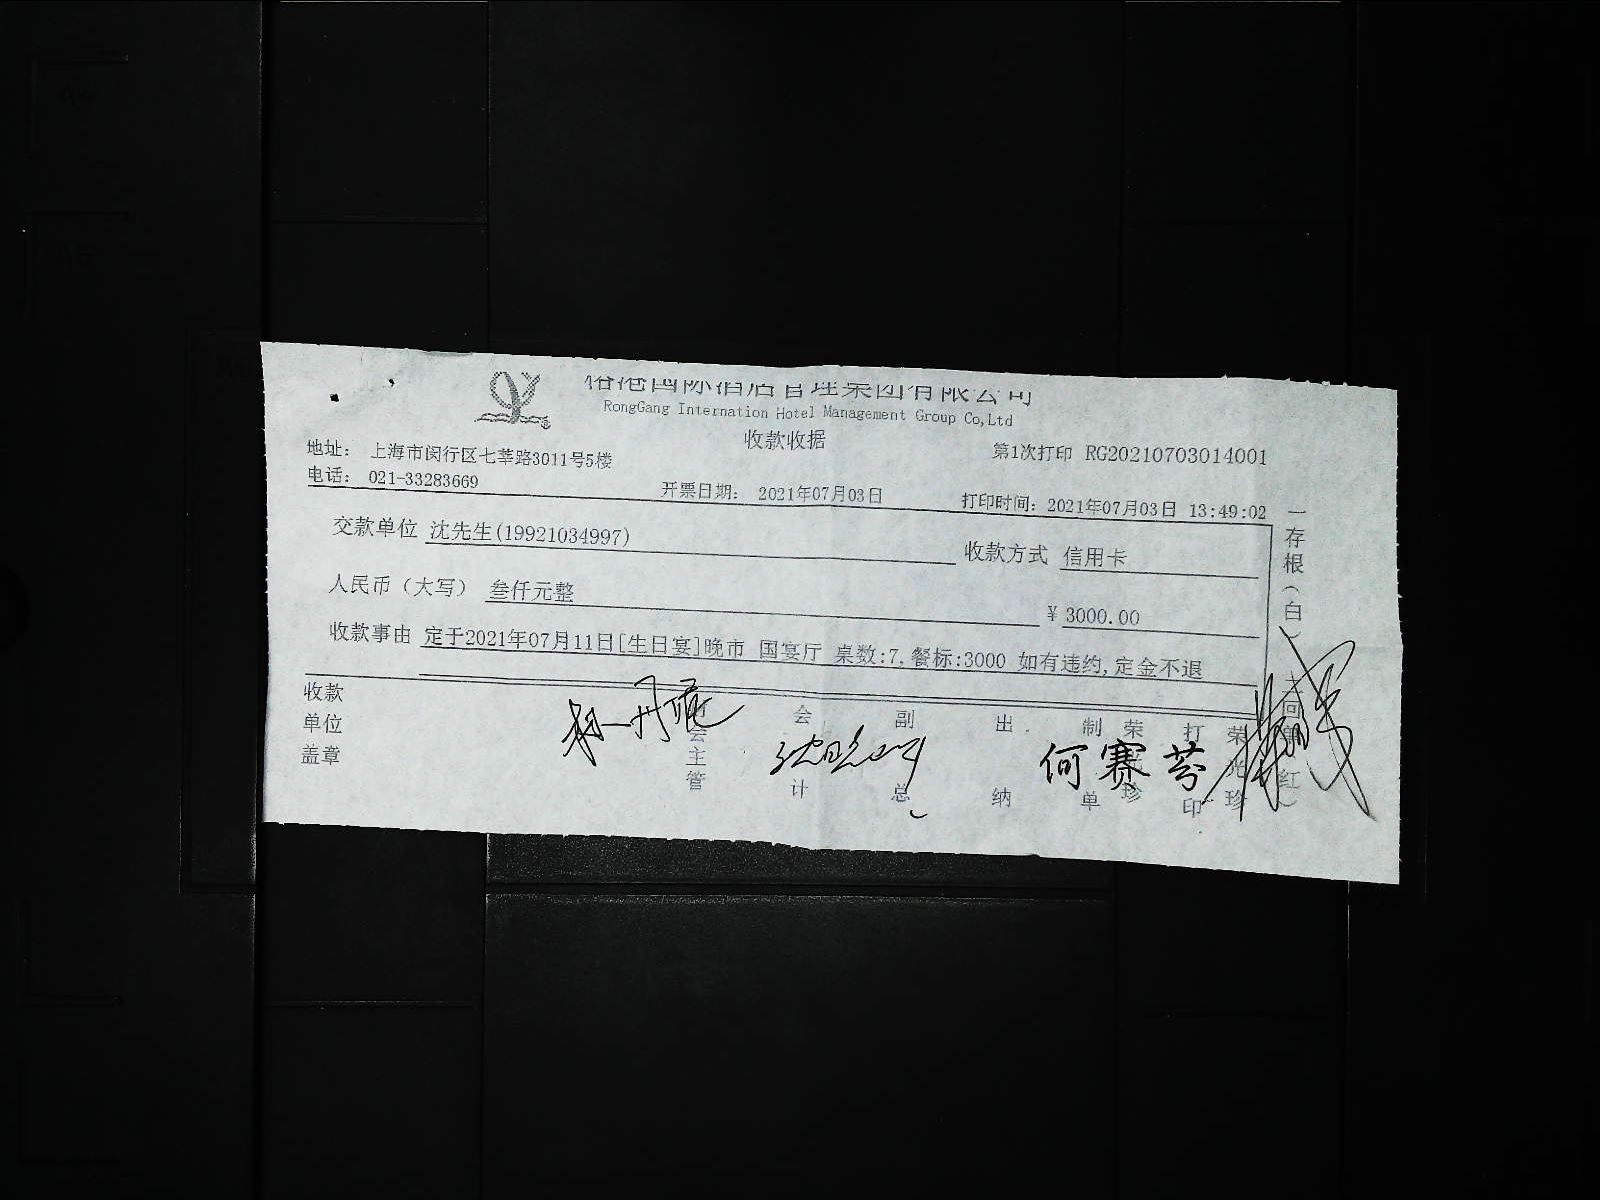 国际酒店管理集团有限公司
RongGang Internation Hotel Management Group Co,Ltd
收款收据
第1次打印 RG20210703014001
地址： 上海市闵行区七莘路3011号5楼
电话： 021-33283669
开票日期： 2021年07月03日
打印时间：2021年07月03日 13:49:02
交款单位 沈先生(19921034997)
收款方式 信用卡
人民币（大写） 叁仟元整
￥3000.00
收款事由 定于2021年07月11日[生日宴]晚市 国宴厅 桌数:7,餐标:3000 如有违约,定金不退
收款
单位
盖章
会主管
会计
副总
出纳
制单
荣光珍
打印
荣光珍
何赛芬
一存根（白）
红）